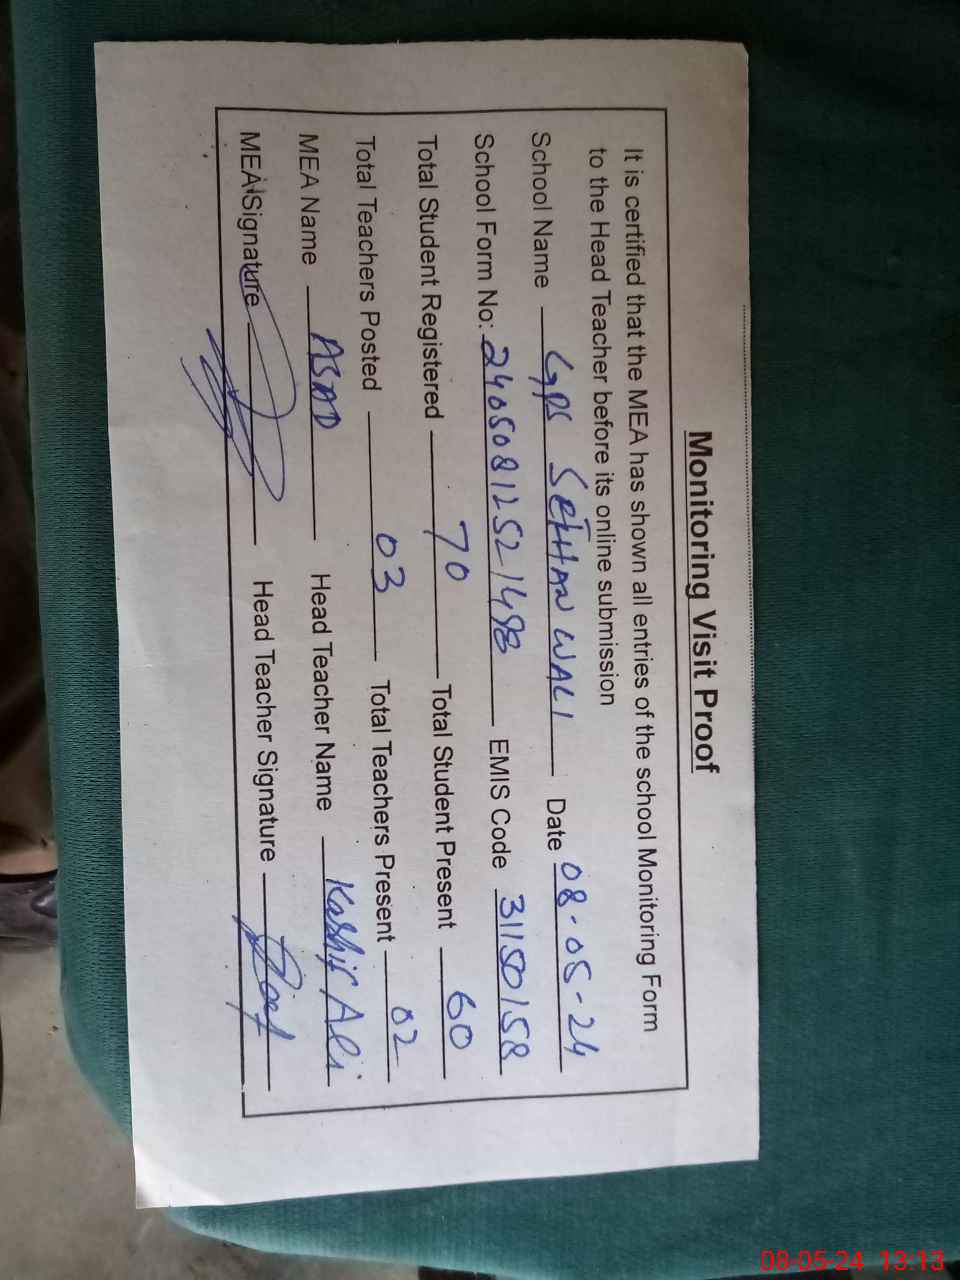 Monitoring Visit Proof
It is certified that the MEA has shown all entries of the school Monitoring Form
to the Head Teacher before its online submission
School Name GPS SETHAN WALI Date 08-05-24
School Form No: 24050812521498 EMIS Code 31150158
Total Student Registered 70 Total Student Present 60
Total Teachers Posted 03 Total Teachers Present 02
MEA Name ASAD Head Teacher Name Kashif Ali
MEA Signature Head Teacher Signature
08-05-24 13:13